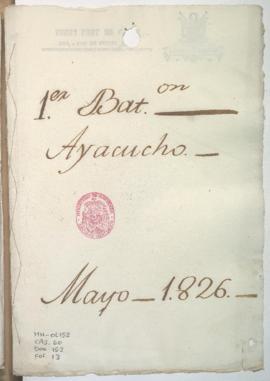 1.er Bat.on
Ayacucho.
Mayo 1.826.
MH-OL152
CAJ. 60
DOC. 152
FOL. 13